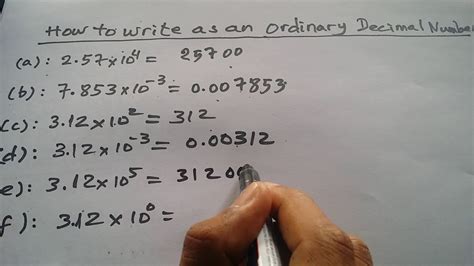 How to write as an ordinary Decimal Number
(a): 2.57×10⁴ = 25700
(b): 7.853×10⁻³ = 0.007853
(c): 3.12×10² = 312
(d): 3.12×10⁻³ = 0.00312
e): 3.12×10⁵ = 3120
f): 3.12×10⁰ =